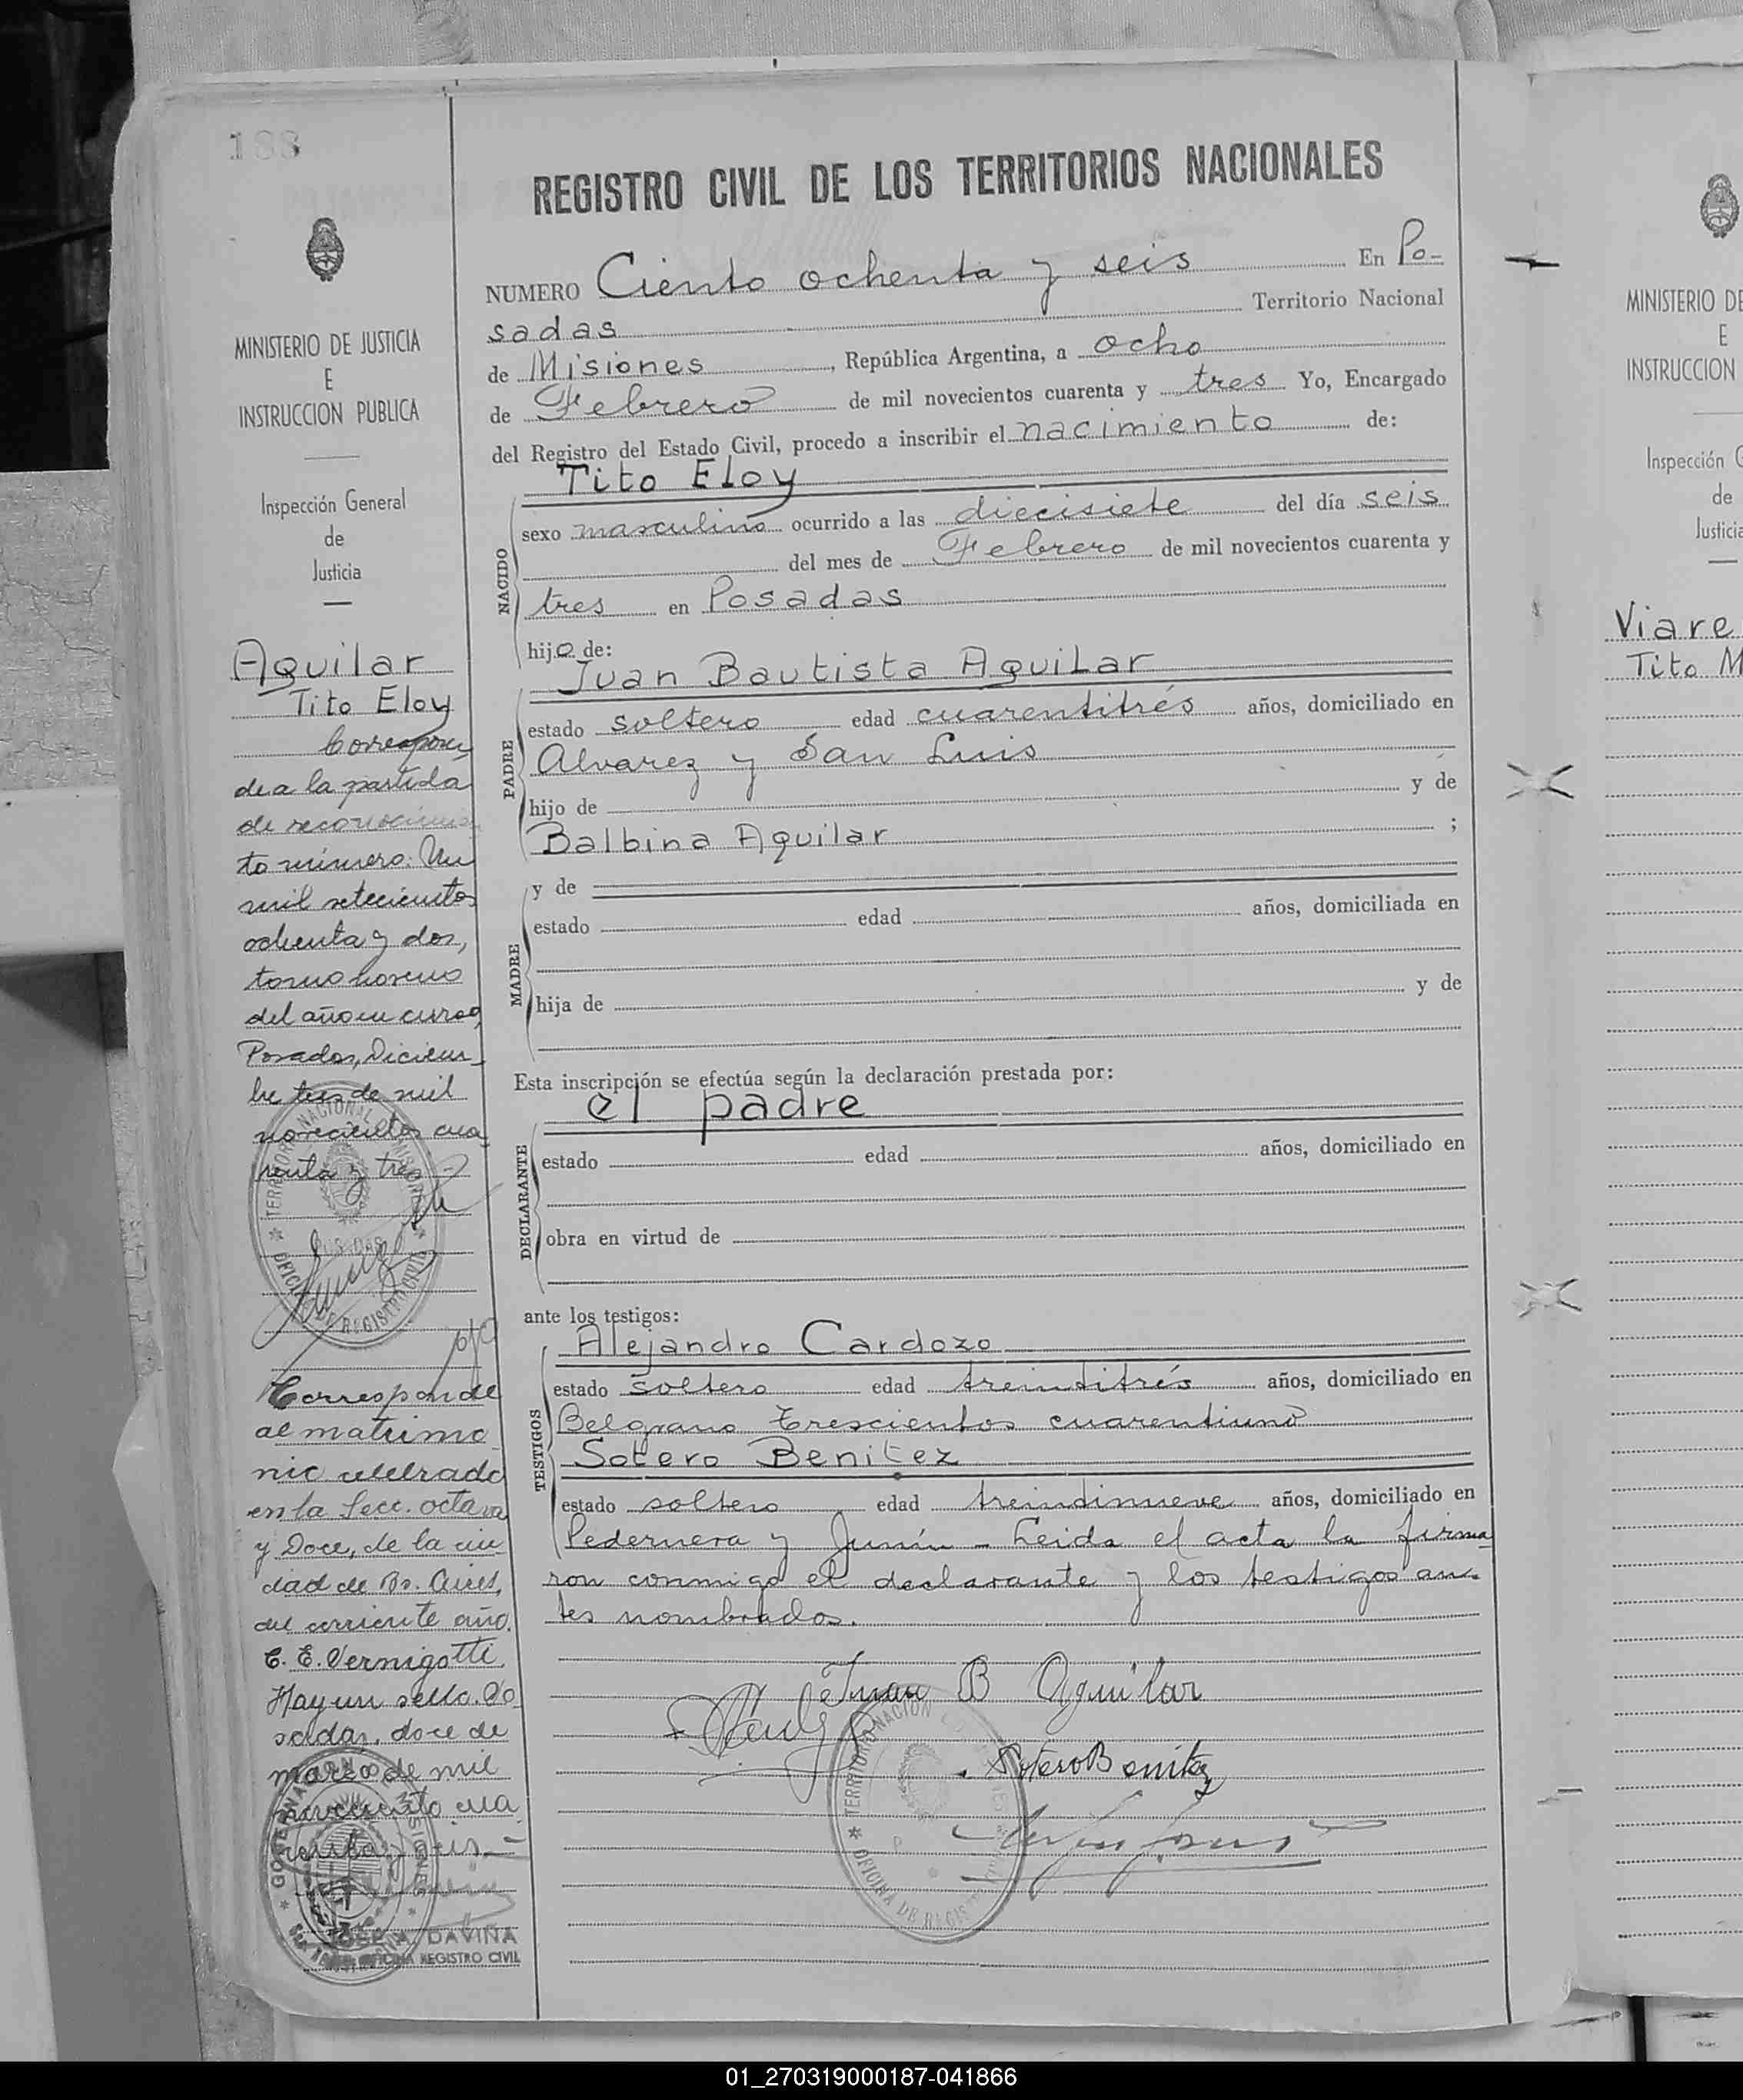 188
REGISTRO CIVIL DE LOS TERRITORIOS NACIONALES
NUMERO Ciento ochenta y seis En Po-
sadas Territorio Nacional
de Misiones, República Argentina, a ocho
de Febrero de mil novecientos cuarenta y tres Yo, Encargado
del Registro del Estado Civil, procedo a inscribir el nacimiento de:
NACIDO
Tito Eloy
sexo masculino ocurrido a las diecisiete del día seis
del mes de Febrero de mil novecientos cuarenta y
tres en Posadas
hijo de:
PADRE
Juan Bautista Aguilar
estado soltero edad cuarentitrés años, domiciliado en
Alvarez y San Luis
hijo de y de
Balbina Aguilar ;
MADRE
y de
estado edad años, domiciliada en
hija de y de
Esta inscripción se efectúa según la declaración prestada por:
DECLARANTE
el padre
estado edad años, domiciliado en
obra en virtud de
ante los testigos:
TESTIGOS
Alejandro Cardozo
estado soltero edad treintitrés años, domiciliado en
Belgrano trescientos cuarentiuno
Sotero Benitez
estado soltero edad treintinueve años, domiciliado en
Pedernera y Junín - Leida el acta la firma
ron conmigo el declarante y los testigos an-
tes nombrados.
Juan B Aguilar
Sotero Benitez
TERRITORIO NACION
OFICINA DE REGIS
MINISTERIO DE JUSTICIA
E
INSTRUCCION PUBLICA
Inspección General
de
Justicia
Aguilar
Tito Eloy
Correspon
de a la partida
de reconocimien
to número: Un
mil setecientos
ochenta y dos,
tomo noveno
del año en curso,
Posadas, Diciem-
bre tres de mil
novecientos cua
renta y tres
TERRITORIO NACIONAL MISIONES
POSADAS
OFICINA DE REGISTRO CIVIL
Corresponde
al matrimo
nio celebrado
en la Secc. octava
y Doce, de la ciu
dad de Bs. Aires,
del corriente año.
C. E. Vernigotti
Hay un sello. Po
sadas, doce de
marzo de mil
novecientos cua
renta y seis.-
GOBERNACION MISIONES
JOSE A. DAVIÑA
OFICINA REGISTRO CIVIL
MINISTERIO DE
E
INSTRUCCION
Inspección G
de
Justicia
Viare
Tito M
01_270319000187-041866